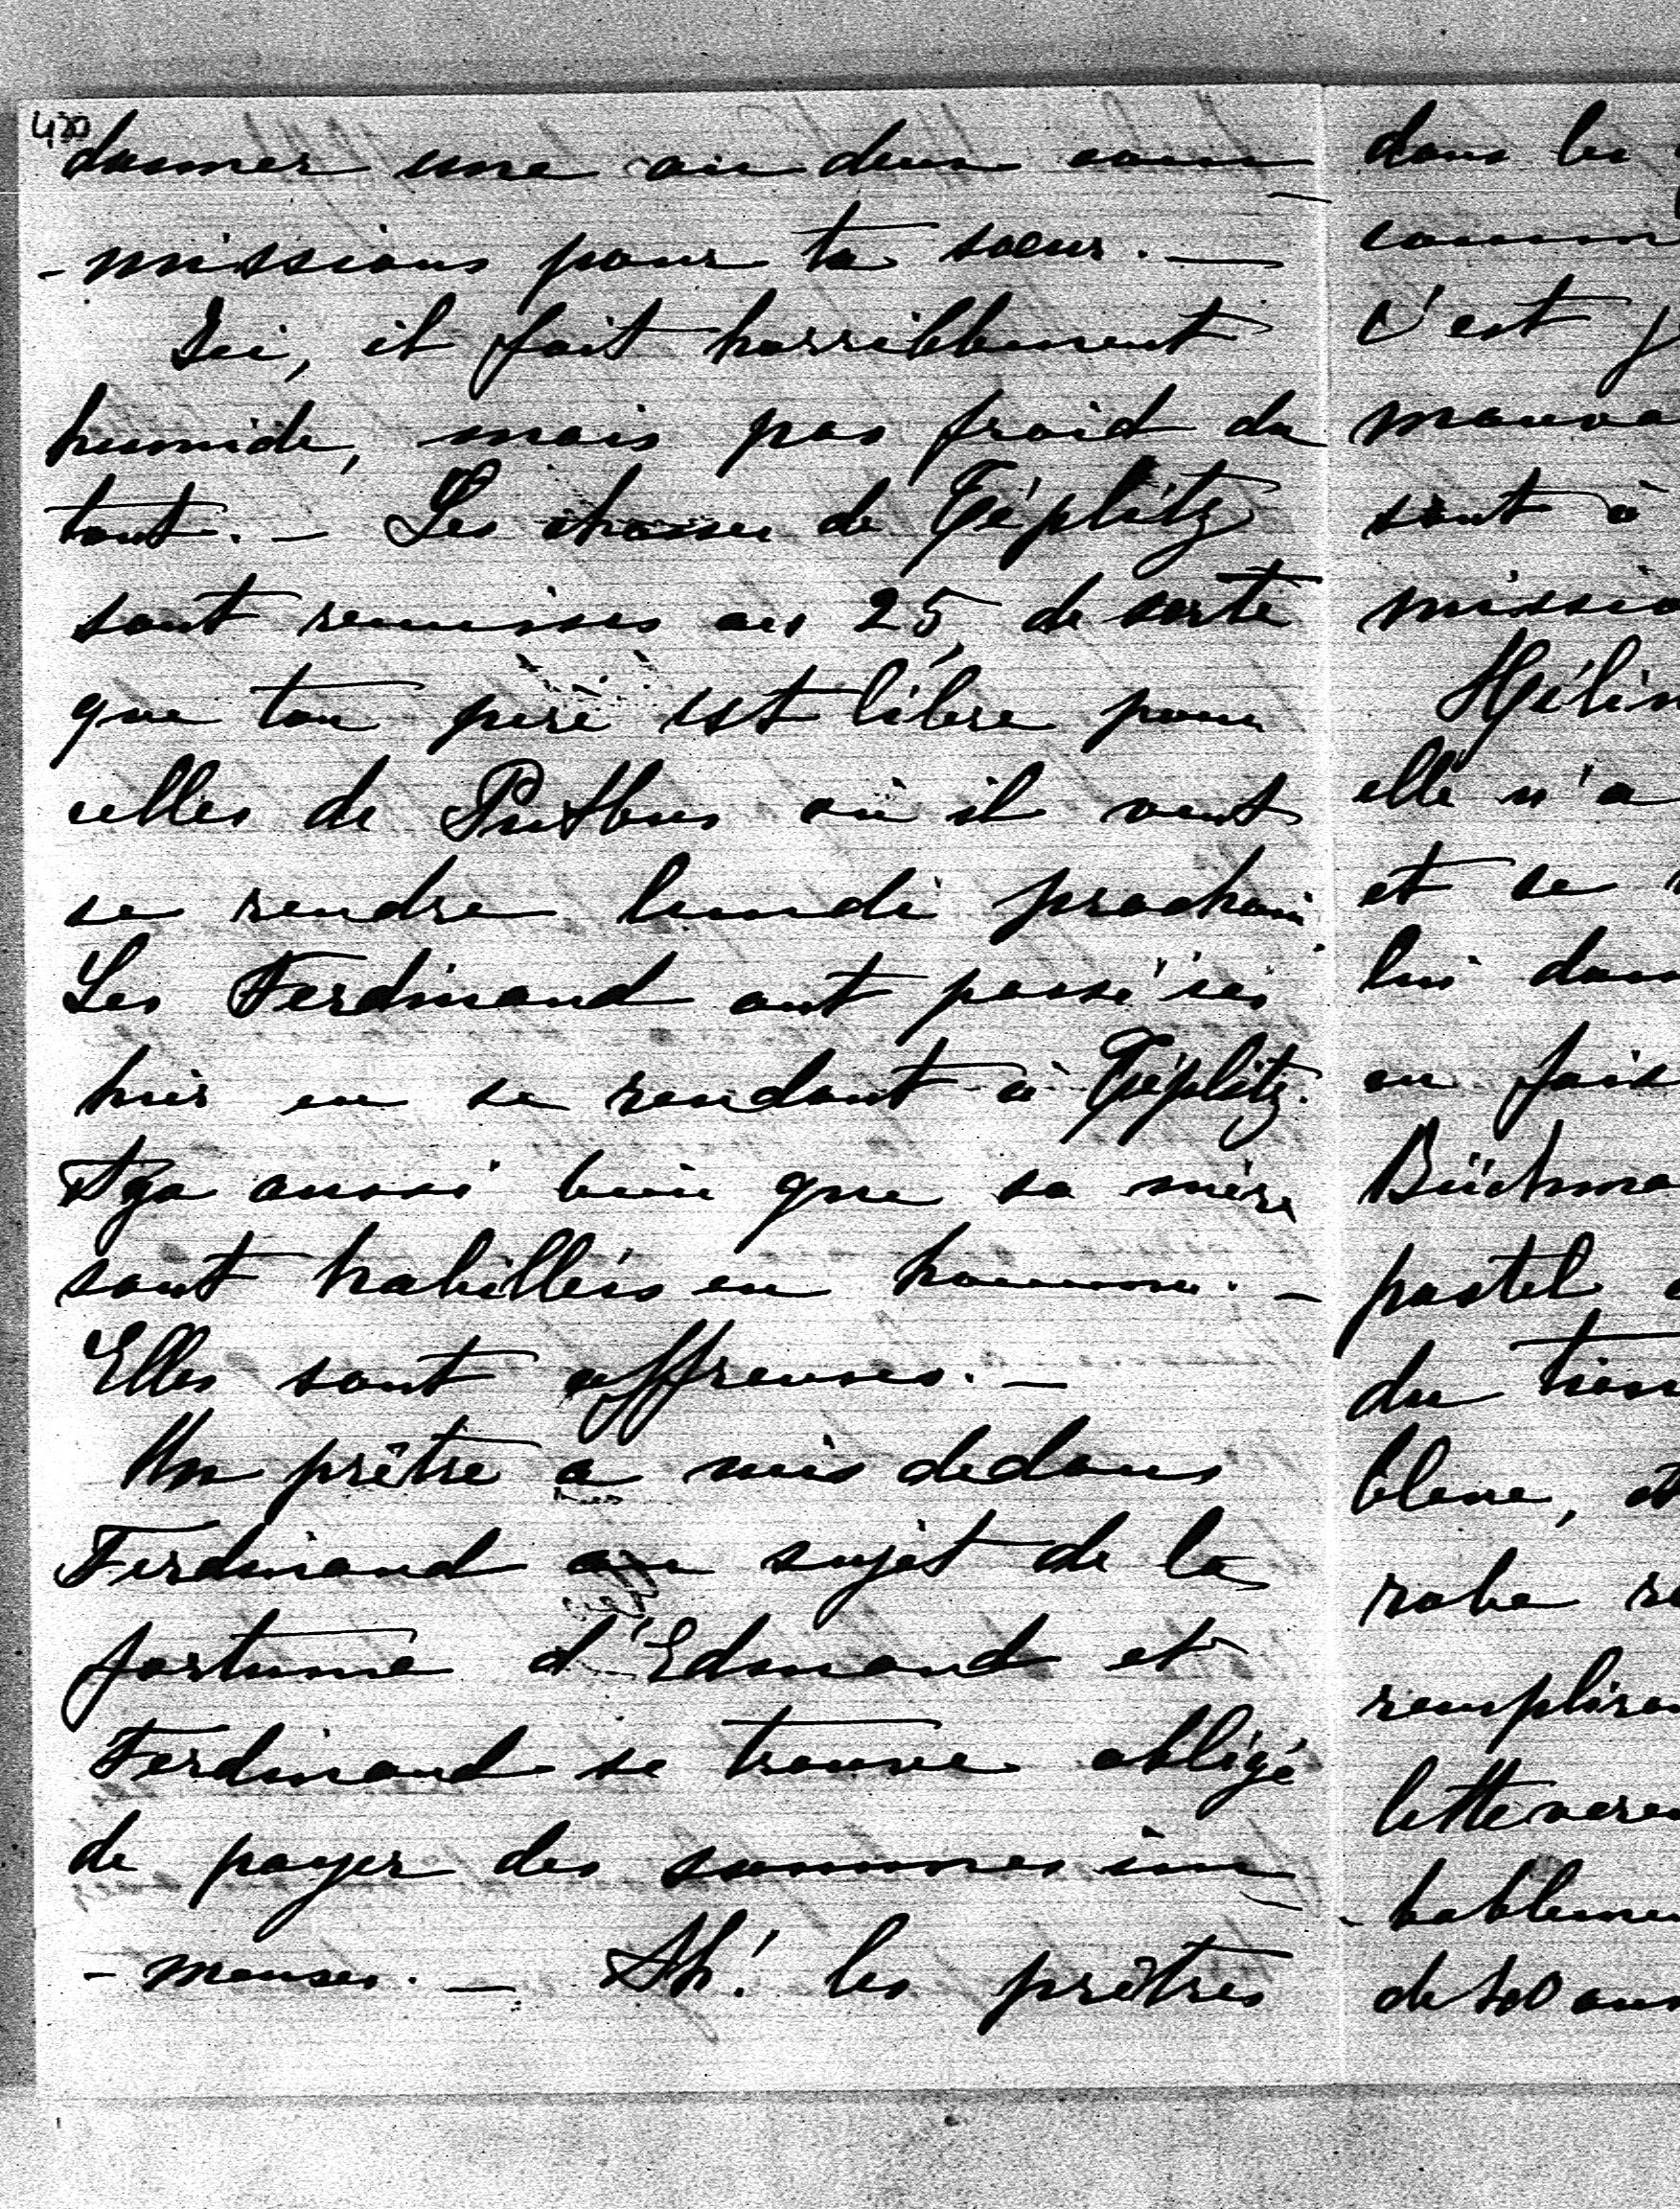 430
donner une ou deux com
-missions pour ta sœur. —
Ici, il fait horriblement
humide, mais pas froid du
tout. — Les chasses de Téplitz
sont remises au 25, de sorte
que ton père est libre pour
celles de Putbus où il veut
se rendre lundi prochain.
Les Ferdinand ont passé ici
hier en se rendant à Téplitz.
aussi bien que sa mère
sont habillées en homme. —
Elles sont affreuses. —
Un prêtre a mis dedans
Ferdinand au sujet de la
fortune d'Edmond et
Ferdinand se trouve obligé
de payer des sommes im
-menses. — Ah! les prêtres
dans les
comm
c'est
mauva
sont à
missio
Hélèn
elle n'a
et se
lui dans
en fais
Büchma
pastel
du
bleue, et
robe
remplira
lette
-bableme
de 100 ans